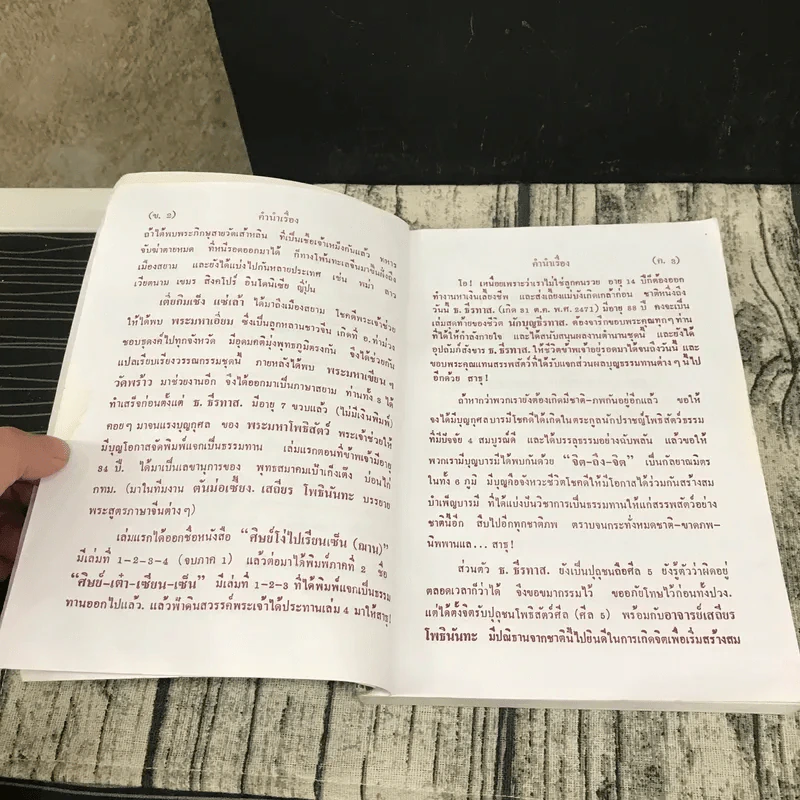 (ข. 2) คำนำเรื่อง
ถ้าได้พบพระภิกษุสายวัดเส้าหลิน ที่เป็นเชื้อเจ้าเหม็งกันแล้ว ทหาร
จับฆ่าตายหมด ที่หนีรอดออกมาได้ ก็ทางโพ้นทะเลจีนมาขึ้นฝั่งถึง
เมืองสยาม และยังได้แบ่งไปกันหลายประเทศ เช่น พม่า ลาว
เวียตนาม เขมร สิงคโปร์ อินโดนีเซีย ญี่ปุ่น
เตี่ยกิมเช็ง แซ่เล้า ได้มาถึงเมืองสยาม โชคดีพระเจ้าช่วย
ให้ได้พบ พระมหาเอี่ยม ซึ่งเป็นลูกหลานชาวจีน เกิดที่ อ.ท่าม่วง
ชอบธุดงค์ไปทุกจังหวัด มีอุดมคติมุ่งพุทธภูมิตรงกัน จึงได้ช่วยกัน
แปลเรียบเรียงวรรณกรรมชุดนี้ ภายหลังได้พบ พระมหาเซียนๆ
วัดพร้าว มาช่วยงานอีก จึงได้ออกมาเป็นภาษาสยาม ท่านทั้ง 3 ได้
ทำเสร็จก่อนตั้งแต่ ธ. ธีรทาส. มีอายุ 7 ขวบแล้ว (ไม่มีเงินพิมพ์)
คอยๆ มาจนแรงบุญกุศล ของ พระมหาโพธิสัตว์ พระเจ้าช่วยให้
มีบุญโอกาสจัดพิมพ์แจกเป็นธรรมทาน เล่มแรกตอนที่ข้าพเจ้ามีอายุ
34 ปี. ได้มาเป็นเลขานุการของ พุทธสมาคมเป้าเก็งเต๊ง บ่อนไก่
กทม. (มาในทีมงาน ตันม่อเซี้ยง. เสถียร โพธินันทะ บรรยาย
พระสูตรภาษาจีนต่างๆ)
เล่มแรกได้ออกชื่อหนังสือ “ศิษย์โง่ไปเรียนเซ็น (ฌาน)”
มีเล่มที่ 1-2-3-4 (จบภาค 1) แล้วต่อมาได้พิมพ์ภาคที่ 2 ชื่อ
“ศิษย์-เต๋า-เซียน-เซ็น” มีเล่มที่ 1-2-3 ที่ได้พิมพ์แจกเป็นธรรม
ทานออกไปแล้ว. แล้วฟ้าดินสวรรค์พระเจ้าได้ประทานเล่ม 4 มาให้สาธุ!
คำนำเรื่อง (ค. 3)
โอ! เหนื่อยเพราะว่าเราไม่ใช่ลูกคนรวย อายุ 14 ปีก็ต้องออก
ทำงานหาเงินเลี้ยงชีพ และส่งเลี้ยงแม่บังเกิดเกล้าก่อน ชาติหนึ่งถึง
วันนี้ ธ. ธีรทาส. (เกิด 31 ต.ค. พ.ศ. 2471) มีอายุ 89 ปี คงจะเป็น
เล่มสุดท้ายของชีวิต นักบุญธีรทาส. ต้องจารึกขอบพระคุณทุกๆ ท่าน
ที่ได้ให้กำลังกายใจ และได้สนับสนุนผลงานตำนานชุดนี้ และยังได้
อุปถัมภ์สังขาร ธ. ธีรทาส. ให้ชีวิตข้าพเจ้าอยู่รอดมาได้จนถึงวันนี้ และ
ขอบพระคุณแทนสรรพสัตว์ที่ได้รับแจกส่วนผลบุญธรรมทานต่างๆ นี้ไป
อีกด้วย สาธุ!
ถ้าหากว่าพวกเรายังต้องเกิดมีชาติ-ภพกันอยู่อีกแล้ว ขอให้
จงได้มีบุญกุศลบารมีโชคดีได้เกิดในตระกูลนักปราชญ์โพธิสัตว์ธรรม
ที่มีปัจจัย 4 สมบูรณ์ดี และได้บรรลุธรรมอย่างฉับพลัน แล้วขอให้
พวกเรามีบุญบารมีได้พบกันด้วย “จิต-ถึง-จิต” เป็นกัลยาณมิตร
ในทั้ง 6 ภูมิ มีบุญคือจังหวะชีวิตโชคดีให้มีโอกาสได้ร่วมกันสร้างสม
บำเพ็ญบารมี ที่ได้แบ่งปันวิชาการเป็นธรรมทานให้แก่สรรพสัตว์อย่าง
ชาตินี้อีก สืบไปอีกทุกชาติภพ ตราบจนกระทั่งหมดชาติ-ขาดภพ-
นิพพานแล... สาธุ!
ส่วนตัว ธ. ธีรทาส. ยังเป็นปุถุชนถือศีล 5 ยังรู้ตัวว่าผิดอยู่
ตลอดเวลาก็ว่าได้ จึงขอขมากรรมไว้ ขออภัยโทษไว้ก่อนทั้งปวง.
แต่ได้ตั้งจิตรับปุถุชนโพธิสัตว์ศีล (ศีล 5) พร้อมกับอาจารย์เสถียร
โพธินันทะ มีปณิธานจากชาตินี้ไปยินดีในการเกิดจิตเพื่อเริ่มสร้างสม